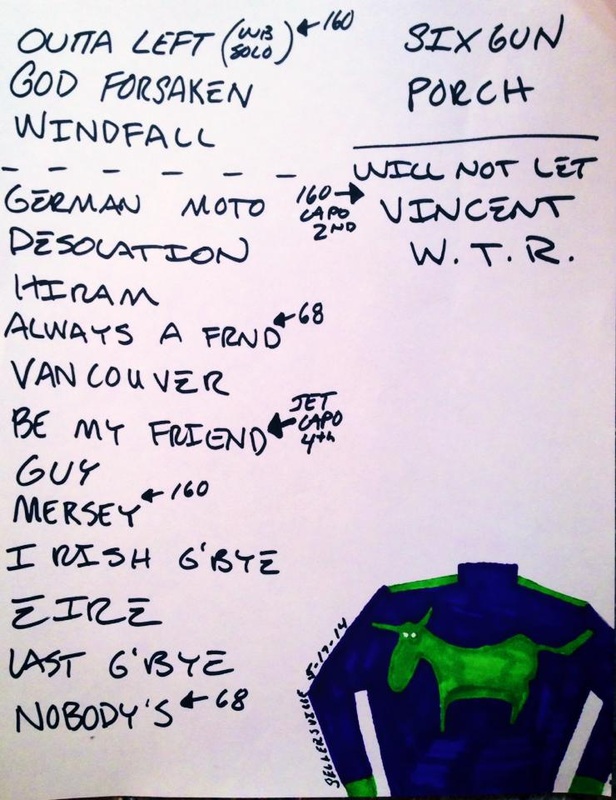 OUTTA LEFT (WB SOLO) ← 160
GOD FORSAKEN
WINDFALL
GERMAN MOTO
DESOLATION
HIRAM
ALWAYS A FRND ← 68
VANCOUVER
BE MY FRIEND ← JET CAPO 4th
GUY
MERSEY ← 160
IRISH G'BYE
EIRE
LAST G'BYE
NOBODY'S ← 68
SIXGUN
PORCH
WILL NOT LET
160 → CAPO 2ND VINCENT
W.T.R.
SELLERSVILLE 5-17-14